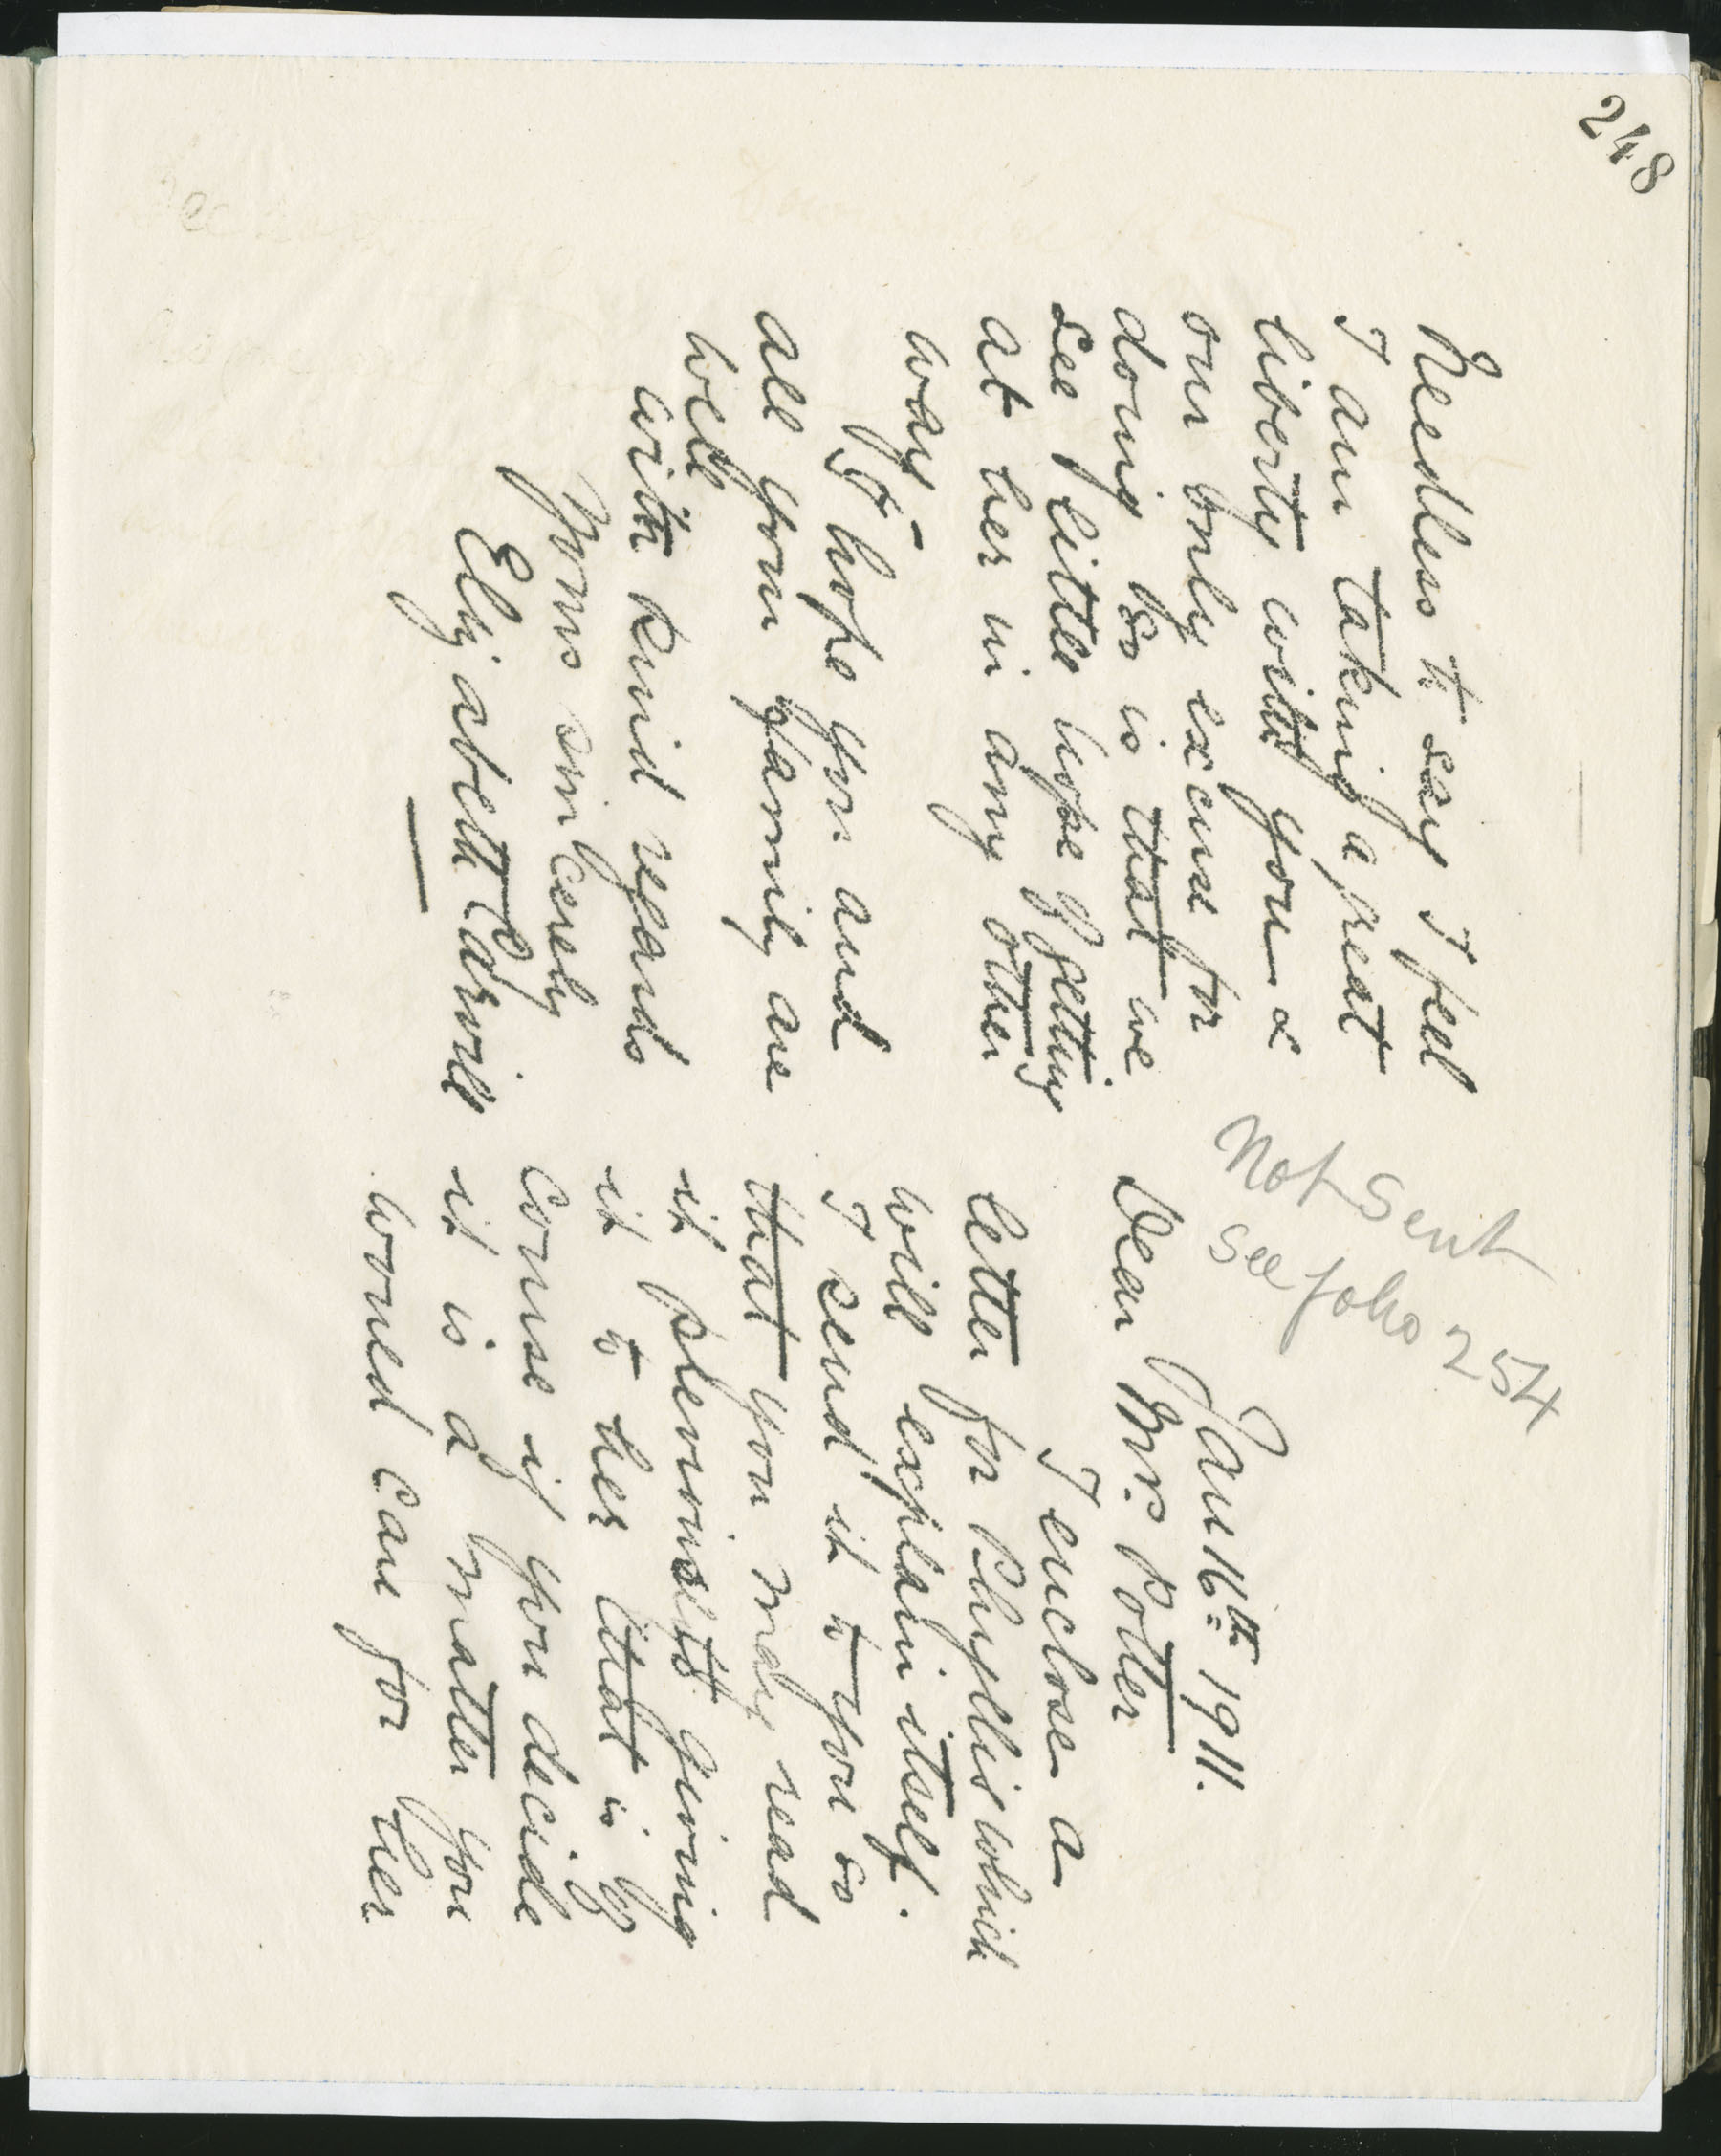 248
Not Sent
See folio 254
Jan 16th 1911.
Dear Mrs. Potter
I enclose a
letter for Phyllis which
will explain itself.
I send it to you so
that you may read
it previous to giving
it to her that is of
course if you decide
it is a matter you
would care for her
Needless to say I feel
I am taking a great
liberty with you &
our only excuse for
doing so is that we
see little hope of getting
at her in any other
way -
I hope you and
all your family are
well
with kind regards
Yours sincerely
Elizabeth Carwill